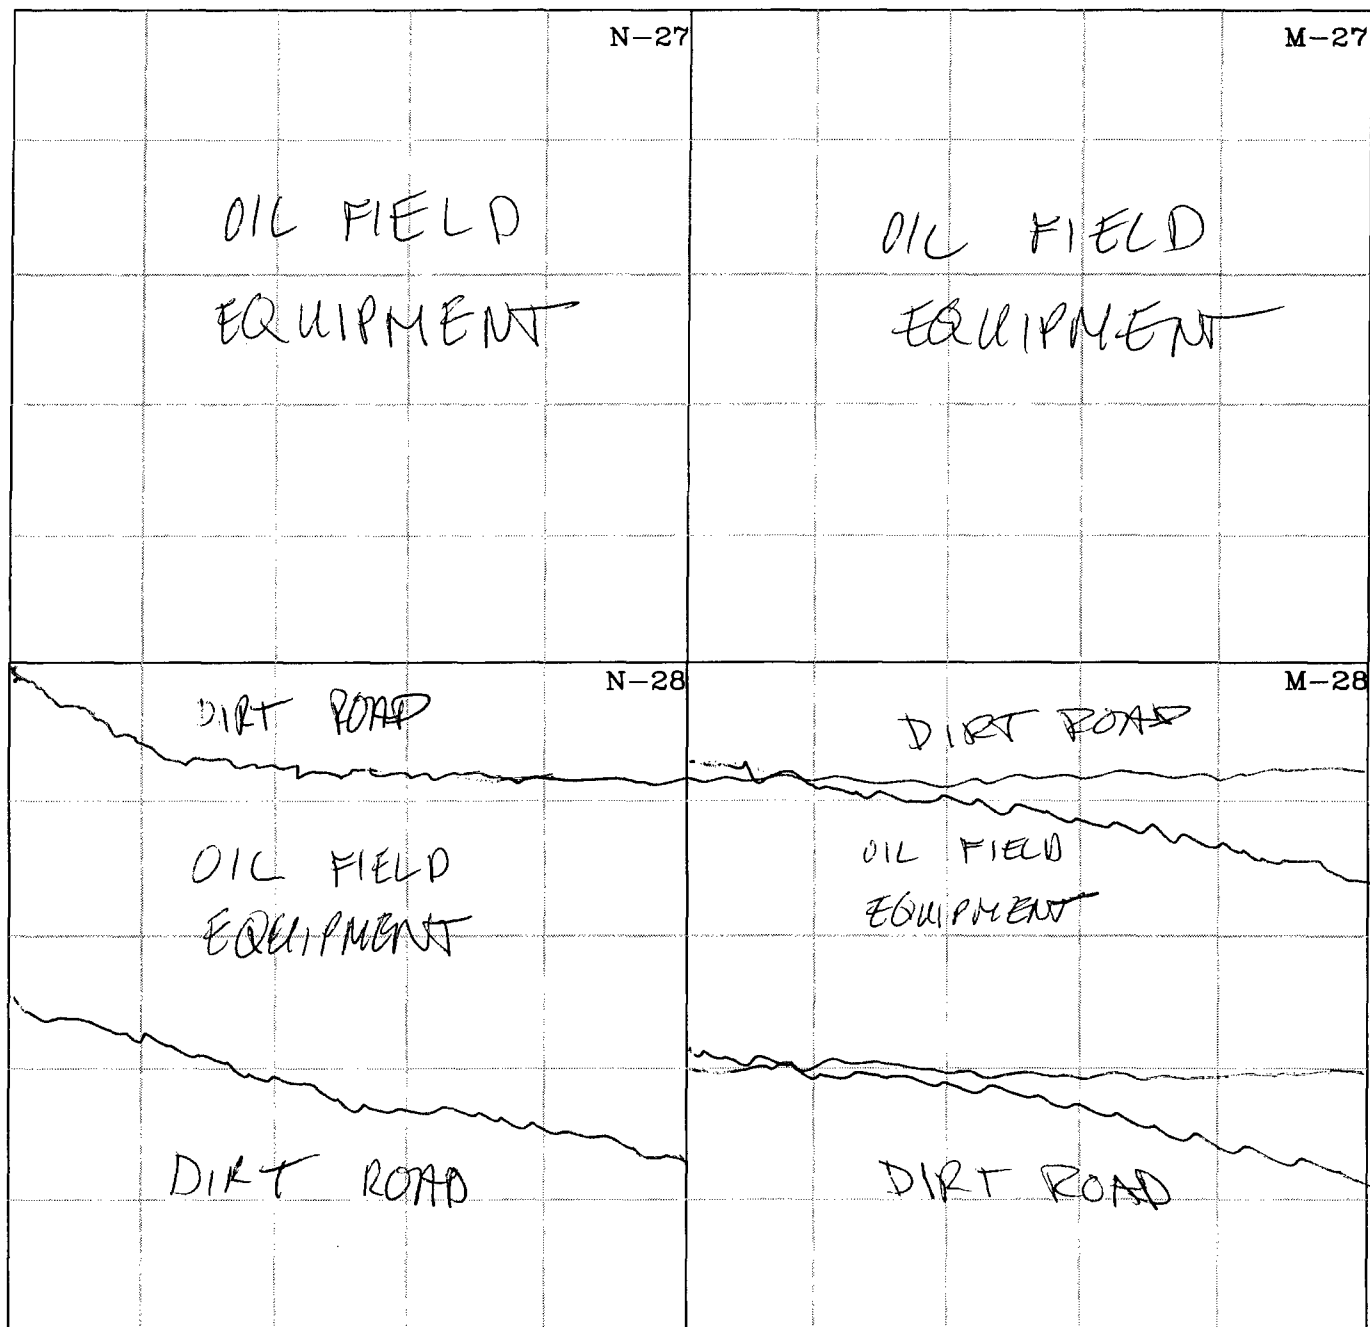 N-27
OIL FIELD
EQUIPMENT
M-27
OIL FIELD
EQUIPMENT
N-28
DIRT ROAD
OIL FIELD
EQUIPMENT
DIRT ROAD
M-28
DIRT ROAD
OIL FIELD
EQUIPMENT
DIRT ROAD